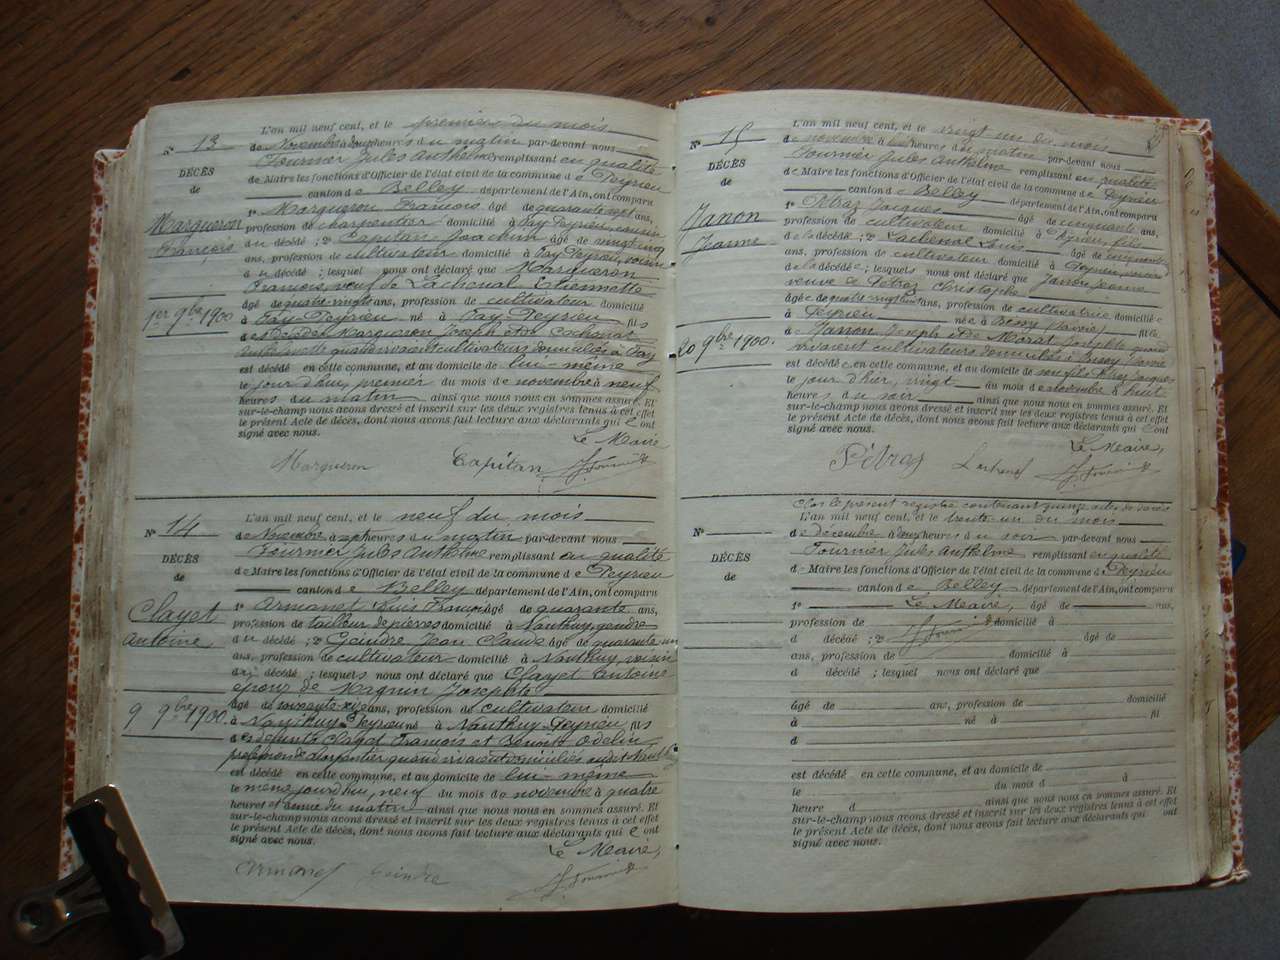 L'an mil neuf cent, et le premier du mois
N° 13
de Novembre à heures du matin par-devant nous
Fournier Jules Anthelme remplissant en qualité
DÉCÈS
de Maire les fonctions d'Officier de l'état civil de la commune de Peyrieu
de
canton de Belley département de l'Ain, ont comparu
1° Marqueron François âgé de quarante sept ans,
Marqueron
profession de charpentier domicilié à Fay Peyrieu, cousin
François
du décédé; 2° Capitan Joachim âgé de
ans, profession de cultivateur domicilié à Fay Peyrieu, voisin
du décédé; lesquels nous ont déclaré que Marqueron
François, veuf de Lachenal Etiennette
âgé de quatre-vingts ans, profession de cultivateur domicilié
1er 9bre 1900
à Fay Peyrieu né à Fay Peyrieu fils
de Marqueron Joseph
quand vivaient cultivateurs domiciliés à Fay
est décédé en cette commune, et au domicile de lui-même
le jour d'hui, premier du mois de novembre à neuf
heures du matin ainsi que nous nous en sommes assuré. Et
sur-le-champ nous avons dressé et inscrit sur les deux registres tenus à cet effet
le présent Acte de décès, dont nous avons fait lecture aux déclarants qui ont
signé avec nous.
Le Maire
Marqueron Capitan J. Fournier
L'an mil neuf cent, et le neuf du mois
N° 14
de Novembre à sept heures du matin par-devant nous
Fournier Jules Anthelme remplissant en qualité
DÉCÈS
de Maire les fonctions d'Officier de l'état civil de la commune de Peyrieu
de
canton de Belley département de l'Ain, ont comparu
1° Armanet Louis François âgé de quarante ans,
Clayet
profession de tailleur de pierres domicilié à Nanthuy, gendre
Antoine
du décédé; 2° Geindre Jean Claude âgé de quarante un
ans, profession de cultivateur domicilié à Nanthuy, voisin
du décédé; lesquels nous ont déclaré que Clayet Antoine
époux de Magnin Josephte
âgé de ans, profession de cultivateur domicilié
9 9bre 1900
à Nanthuy Peyrieu né à Nanthuy Peyrieu fils
de défunts Clayet François et Benoite Odelin
profession de charpentier quand vivaient domiciliés
est décédé en cette commune, et au domicile de lui-même
le même jourd'hui, neuf du mois de novembre à quatre
heures et demie du matin ainsi que nous nous en sommes assuré. Et
sur-le-champ nous avons dressé et inscrit sur les deux registres tenus à cet effet
le présent Acte de décès, dont nous avons fait lecture aux déclarants qui ont
signé avec nous.
Le Maire,
Armanet Geindre J. Fournier
L'an mil neuf cent, et le vingt un du mois
N° 15
de novembre à heures du matin par-devant nous
Fournier Jules Anthelme remplissant en qualité
DÉCÈS
de Maire les fonctions d'Officier de l'état civil de la commune de Peyrieu
de
canton de Belley département de l'Ain, ont comparu
1° Pétraz Jacques âgé de cinquante ans,
Janon
profession de cultivateur domicilié à Peyrieu, fils
Jeanne
de la décédée; 2° Lachenal Louis âgé de
ans, profession de cultivateur domicilié à Peyrieu, voisin
de la décédée; lesquels nous ont déclaré que Janon Jeanne
veuve de Pétraz Christophe
âgée de quatre vingt ans, profession de cultivatrice domiciliée
à Peyrieu née à Bissy (Savoie) fille
20 9bre 1900.
de Janon Joseph et de Morat Josephte quand
vivaient cultivateurs domiciliés à Bissy, Savoie
est décédée en cette commune, et au domicile de son fils Pétraz Jacques
le jour d'hier, vingt du mois de novembre à huit
heures du soir ainsi que nous nous en sommes assuré. Et
sur-le-champ nous avons dressé et inscrit sur les deux registres tenus à cet effet
le présent Acte de décès, dont nous avons fait lecture aux déclarants qui ont
signé avec nous.
Le Maire,
Pétraz Lachenal J. Fournier
Clos le présent registre contenant quinze actes de décès
L'an mil neuf cent, et le trente un du mois
N°
de décembre à heures du soir par-devant nous
Fournier Jules Anthelme remplissant en qualité
DÉCÈS
de Maire les fonctions d'Officier de l'état civil de la commune de Peyrieu
de
canton de Belley département de l'Ain, ont comparu
1° Le Maire, âgé de ans,
profession de J. Fournier domicilié à
d décédé; 2° âgé de
ans, profession de domicilié à
d décédé; lesquels nous ont déclaré que
âgé de ans, profession de domicilié
à né à fil
d
est décédé en cette commune, et au domicile de
le du mois d à
heure d ainsi que nous nous en sommes assuré. Et
sur-le-champ nous avons dressé et inscrit sur les deux registres tenus à cet effet
le présent Acte de décès, dont nous avons fait lecture aux déclarants qui ont
signé avec nous.